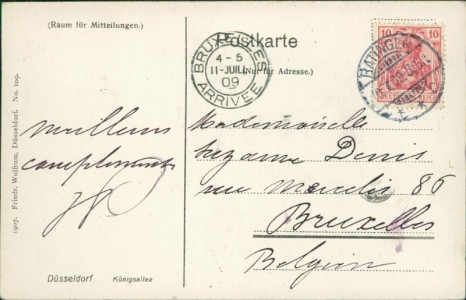 (Raum für Mitteilungen.)
Postkarte
(Nur für Adresse.)
BRUXELLES
4-5
11-JUIL
09
ARRIVEE
10 10
RATINGEN
DEUTSCHES REICH
meilleurs
compliments
Mademoiselle
Suzanne Denis
rue 86
Bruxelles
Belgien
Düsseldorf Königsallee
1907. Friedr. Wolfrum, Düsseldorf. No. 109.